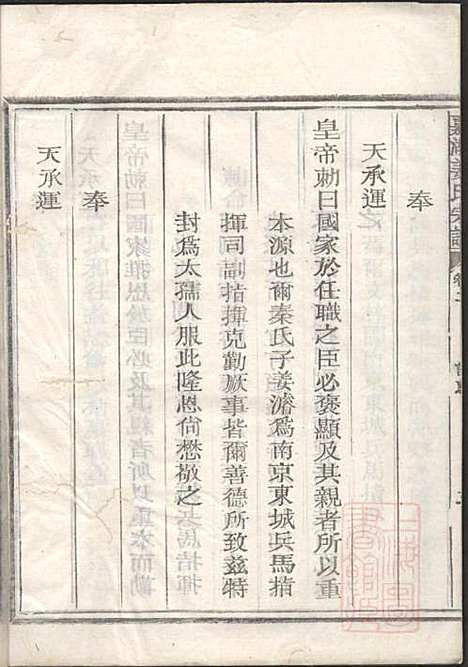 奉
天承運
皇帝勅曰國家於任職之臣必褒顯及其親者所以重
本源也爾秦氏子姜濬爲南京東城兵馬指
揮司副指揮克勤厥事皆爾善德所致兹特
封爲太孺人服此隆恩尙懋敬之
奉
天承運